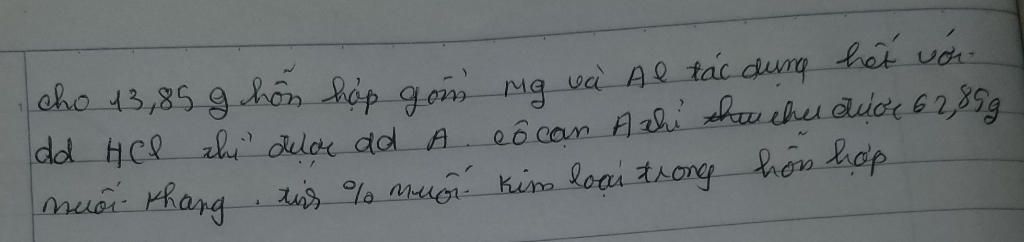 cho 13,85 g hỗn hợp gồm Mg và Al tác dụng hết với
dd HCl thì được dd A. cô cạn A thì thu được 62,85g
muối khang. tính % muối kim loại trong hỗn hợp